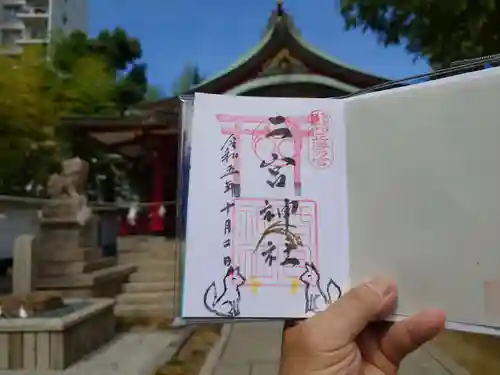 二宮神社
令和五年十月二日